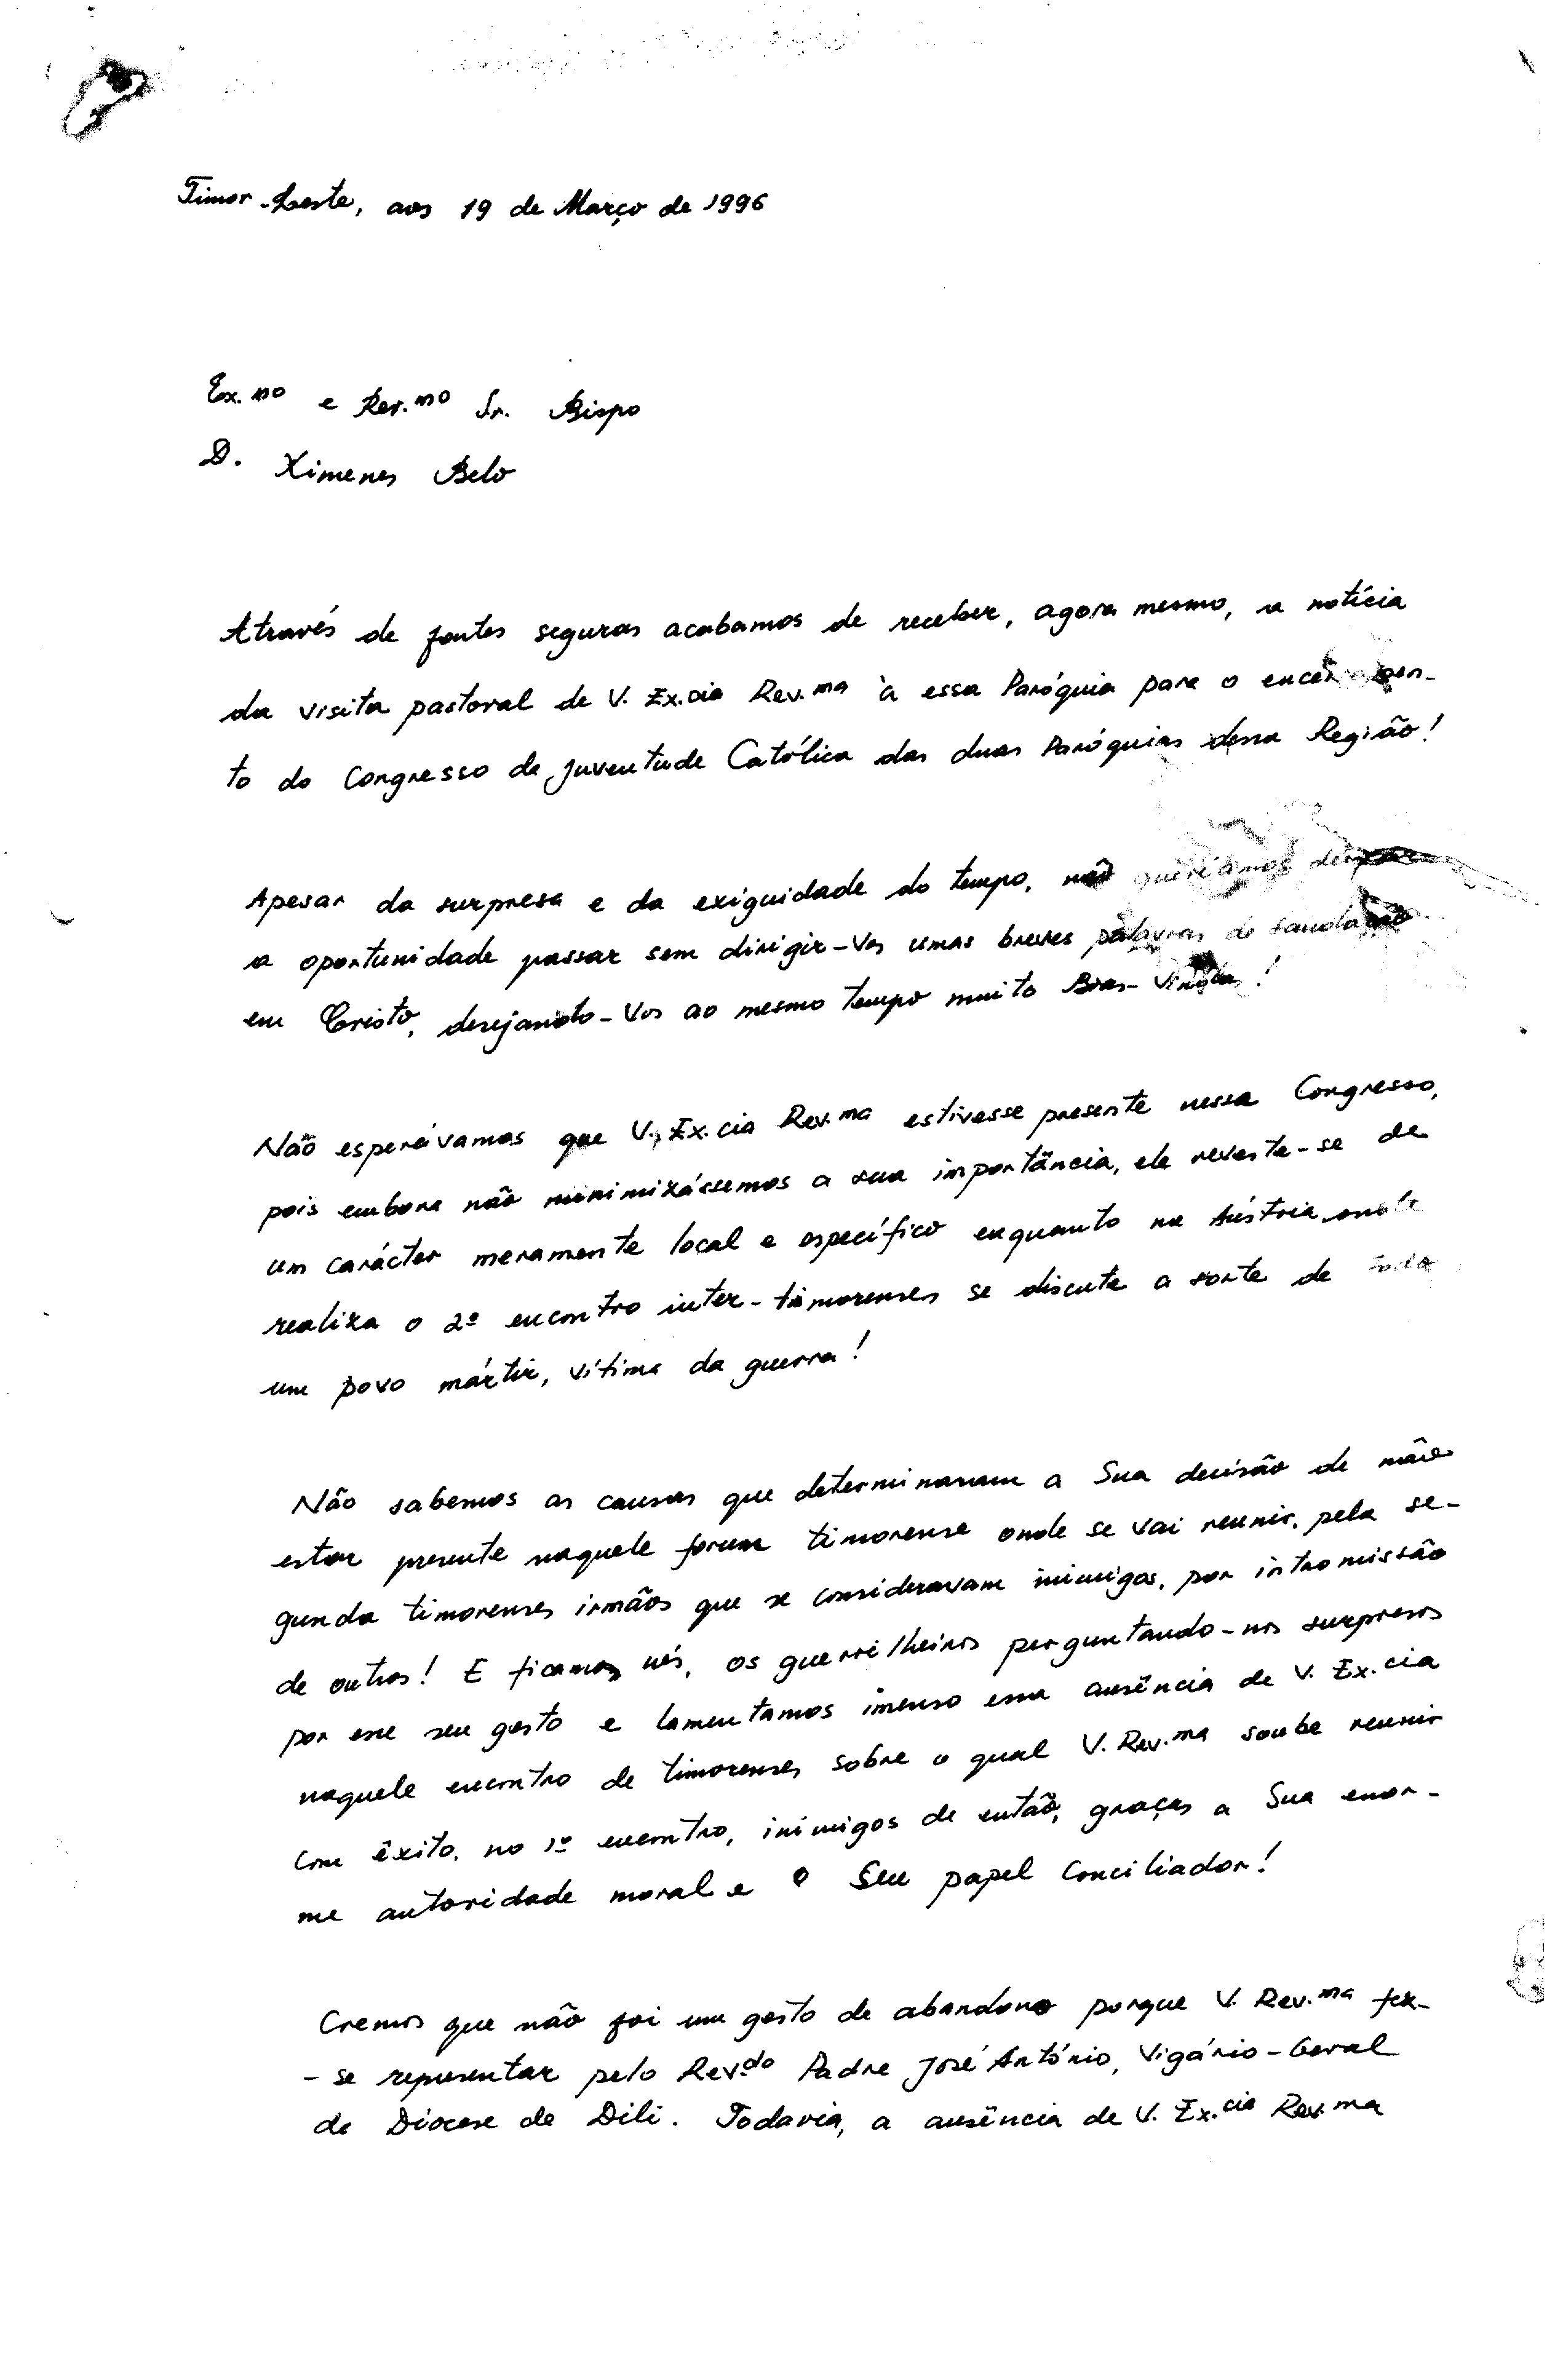 Timor-Leste, aos 19 de Março de 1996
Ex.mo e Rev.mo Sr. Bispo
D. Ximenes Belo
Através de fontes seguras acabamos de receber, agora mesmo, a notícia
da visita pastoral de V. Ex.cia Rev.ma à essa Paróquia para o encerramen-
to do Congresso da Juventude Católica das duas Paróquias dessa Região!
Apesar da surpresa e da exiguidade do tempo, não queríamos deixar
a oportunidade passar sem dirigir-Vos umas breves palavras de saudação
em Cristo, desejando-Vos ao mesmo tempo muito Boas-Vindas!
Não esperávamos que V. Ex.cia Rev.ma estivesse presente nesse Congresso,
pois embora não minimizássemos a sua importância, ele reveste-se de
um carácter meramente local e específico enquanto na Áustria onde
realiza o 2º encontro inter-timorenses se discute a sorte de todo
um povo mártir, vítima da guerra!
Não sabemos as causas que determinaram a Sua decisão de não
estar presente naquele forum timorense onde se vai reunir, pela se-
gunda timorenses irmãos que se consideravam inimigos, por intromissão
de outros! E ficamos nós, os guerrilheiros perguntando-nos surpresos
por esse seu gesto e lamentamos imenso essa ausência de V. Ex.cia
naquele encontro de timorenses sobre o qual V. Rev.ma soube reunir
com êxito, no 1º encontro, inimigos de então, graças a Sua enor-
me autoridade moral e o Seu papel conciliador!
Cremos que não foi um gesto de abandono porque V. Rev.ma fez-
-se representar pelo Rev.do Padre José António, Vigário-Geral
da Diocese de Dili. Todavia, a ausência de V. Ex.cia Rev.ma